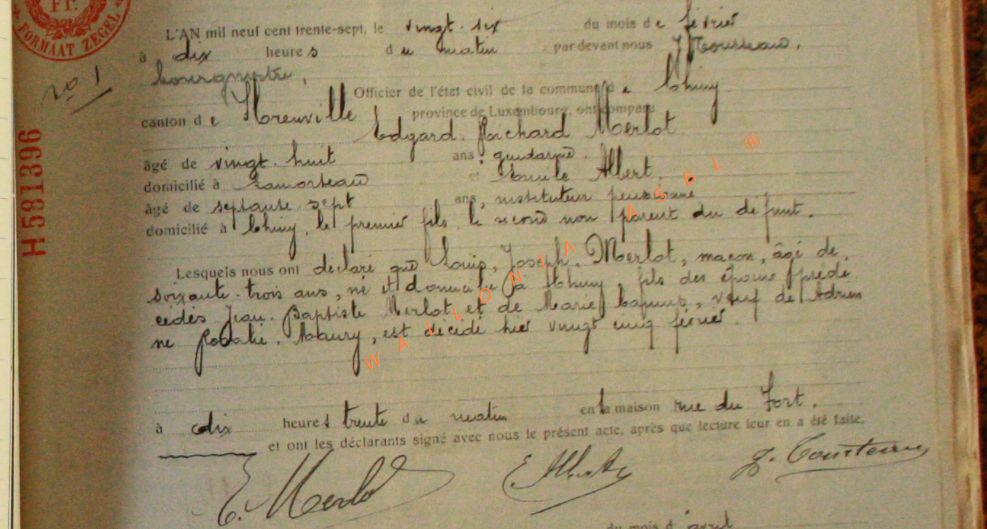 FORMAAT ZEGEL
H 581396
Nº 1
L'AN mil neuf cent trente-sept, le vingt-six du mois de février
à dix heures du matin par devant nous
bourgmestre,
Officier de l'état civil de la commune de Chiny
canton de province de Luxembourg, ont comparu
Edgard Richard Merlot
âgé de vingt-huit ans, gendarme
domicilié à et Emile Albert,
âgé de septante sept ans, instituteur pensionné
domicilié à Chiny, le premier fils, le second non parent du défunt.
Lesquels nous ont déclaré que Louis, Joseph, Merlot, maçon, âgé de
soixante-trois ans, né et domicilié à Chiny fils des époux prédé
cédés Jean-Baptiste Merlot et de Marie, veuf de Adrien
ne Rosalie, est décédé hier vingt cinq février.
WALLONIA ASBL ®
à dix heures trente du matin en la maison rue du Fort.
et ont les déclarants signé avec nous le présent acte, après que lecture leur en a été faite.
E. Merlot
du mois d avril